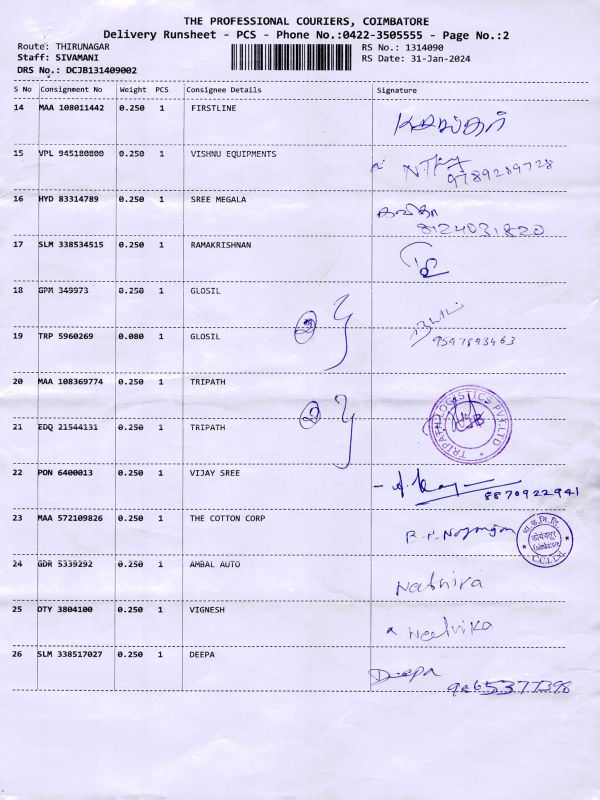 THE PROFESSIONAL COURIERS, COIMBATORE
Delivery Runsheet - PCS - Phone No.:0422-3505555 - Page No.:2
Route: THIRUNAGAR
RS No.: 1314090
Staff: SIVAMANI
RS Date: 31-Jan-2024
DRS No.: DCJB131409002
S No Consignment No Weight PCS Consignee Details Signature
14 MAA 108011442 0.250 1 FIRSTLINE
15 VPL 945180800 0.250 1 VISHNU EQUIPMENTS
9789289728
16 HYD 83314789 0.250 1 SREE MEGALA கவிதா
8124031820
17 SLM 338534515 0.250 1 RAMAKRISHNAN
18 GPM 349973 0.250 1 GLOSIL
2
19 TRP 5960269 0.080 1 GLOSIL
9597893463
20 MAA 108369774 0.250 1 TRIPATH
2
TRIPATH LOGISTICS PVT. LTD
21 EDQ 21544131 0.250 1 TRIPATH
22 PON 6400013 0.250 1 VIJAY SREE
8870922941
23 MAA 572109826 0.250 1 THE COTTON CORP
Coimbatore
C.C.I. Ltd.
24 GDR 5339292 0.250 1 AMBAL AUTO Nathiya
25 OTY 3804100 0.250 1 VIGNESH
26 SLM 338517027 0.250 1 DEEPA Deepa
9865377398